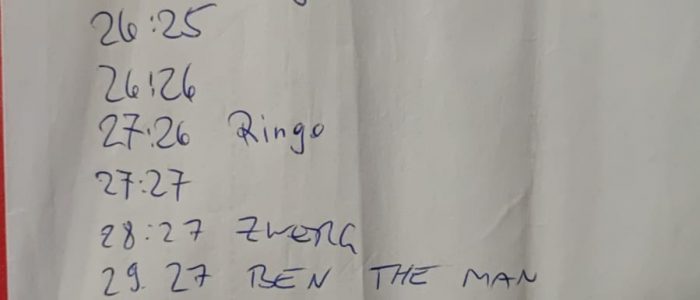 26:25
26:26
27:26 Ringo
27:27
28:27 ZWERG
29.27 BEN THE MAN